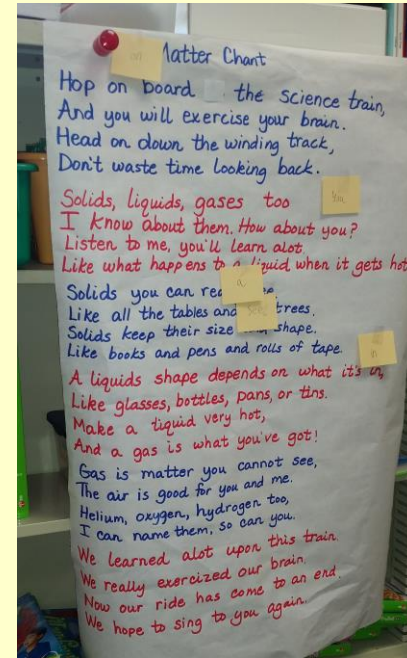 Matter Chant
Hop on board the science train,
And you will exercise your brain.
Head on down the winding track,
Don't waste time looking back.
Solids, liquids, gases too
I know about them. How about you?
Listen to me, you'll learn alot,
Like what happens to a liquid when it gets hot
Solids you can
Like all the tables and trees.
Solids keep their size shape.
Like books and pens and rolls of tape.
A liquids shape depends on what it's in,
Like glasses, bottles, pans, or tins.
Make a liquid very hot,
And a gas is what you've got!
Gas is matter you cannot see,
The air is good for you and me.
Helium, oxygen, hydrogen too,
I can name them, so can you.
We learned alot upon this train.
We really exercized our brain.
Now our ride has come to an end.
We hope to sing to you again.